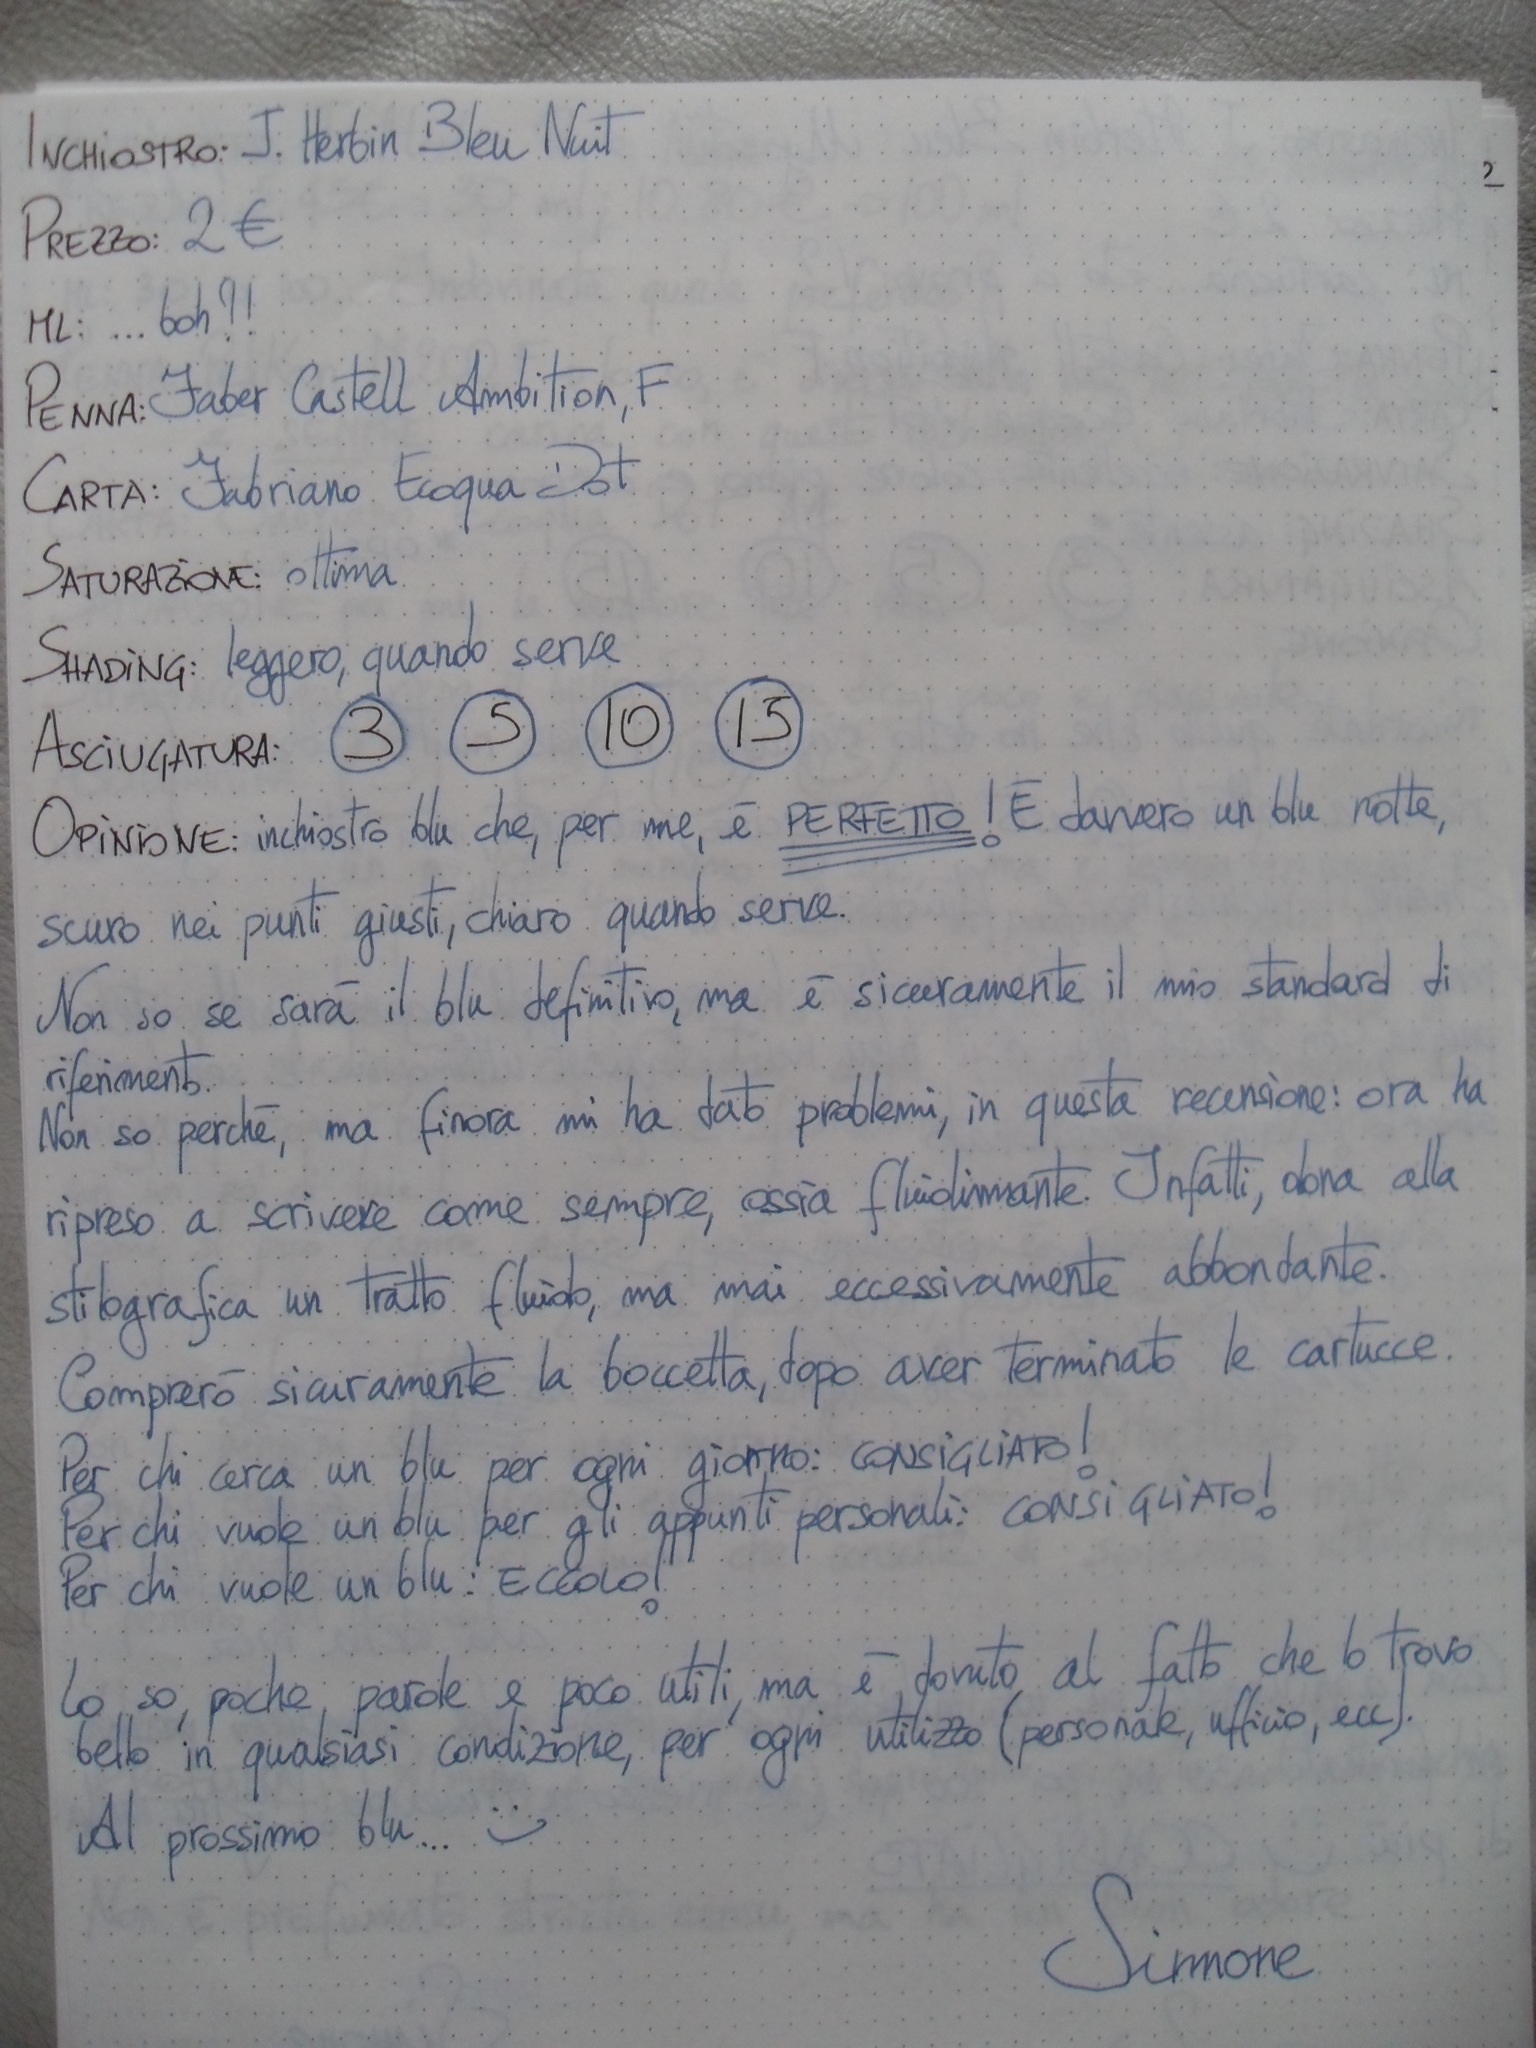 INCHIOSTRO: J. Herbin Bleu Nuit
PREZZO: 2 €
ML: ... boh?!
PENNA: Faber Castell Ambition, F
CARTA: Fabriano Ecoqua Dot
SATURAZIONE: ottima
SHADING: leggero, quando serve
ASCIUGATURA: 3 5 10 15
OPINIONE: inchiostro blu che, per me, è PERFETTO! È davvero un blu notte,
scuro nei punti giusti, chiaro quando serve.
Non so se sarà il blu definitivo, ma è sicuramente il mio standard di
riferimento.
Non so perchè, ma finora mi ha dato problemi, in questa recensione: ora ha
ripreso a scrivere come sempre, ossia fluidinmante. Infatti, dona alla
stilografica un tratto fluido, ma mai eccessivamente abbondante.
Comprerò sicuramente la boccetta, dopo aver terminato le cartucce.
Per chi cerca un blu per ogni giorno: CONSIGLIATO!
Per chi vuole un blu per gli appunti personali: CONSIGLIATO!
Per chi vuole un blu: ECCOLO!
Lo so, poche parole e poco utili, ma è dovuto al fatto che lo trovo
bello in qualsiasi condizione, per ogni utilizzo (personale, ufficio, ecc).
Al prossimo blu... :)
Simone